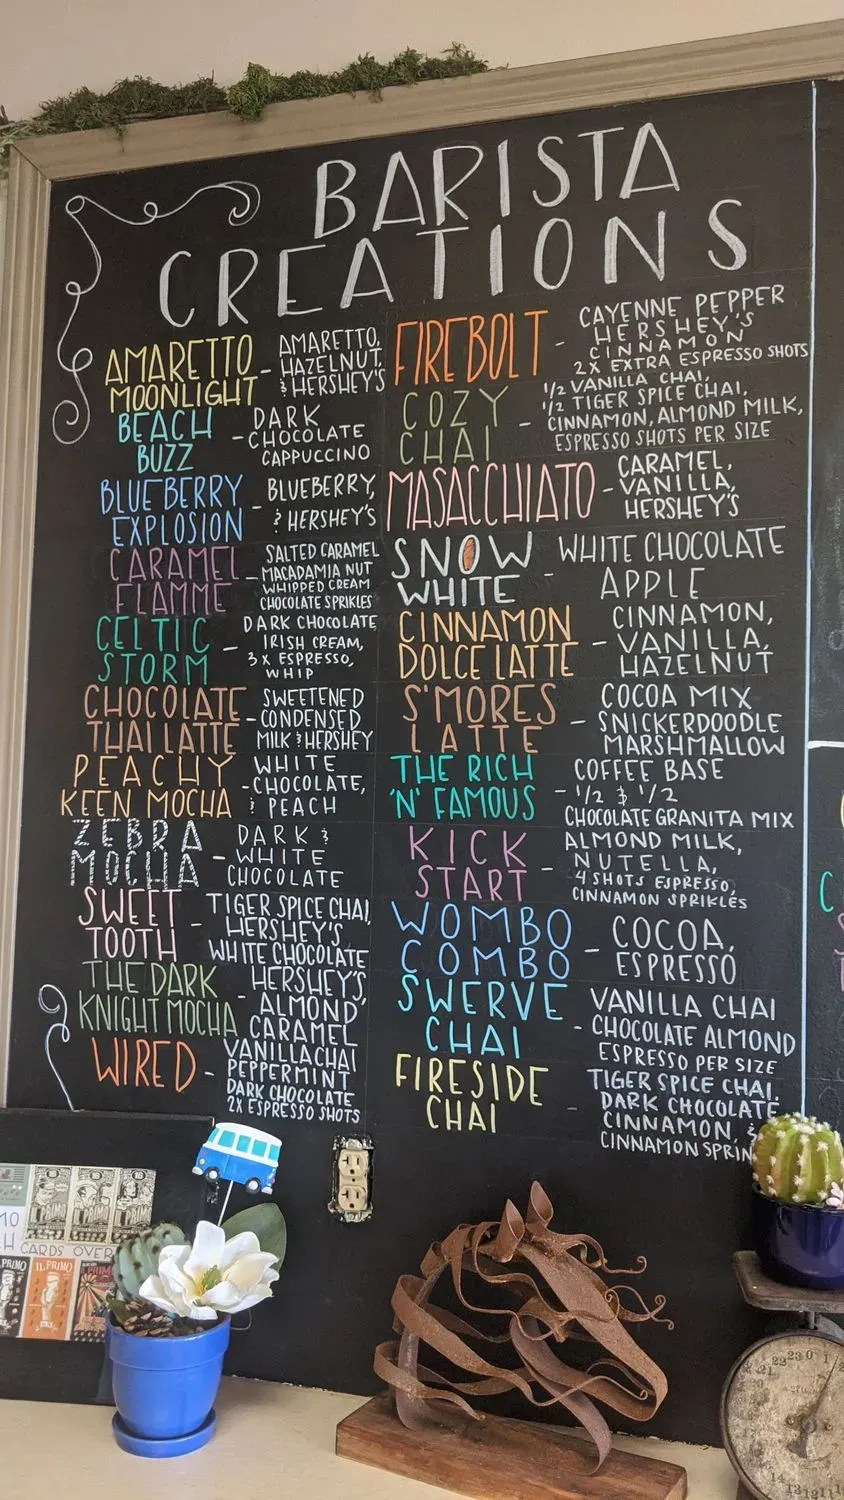 BARISTA
CREATIONS
AMARETTO
MOONLIGHT
- AMARETTO,
HAZELNUT,
& HERSHEY'S
BEACH
BUZZ
- DARK
CHOCOLATE
CAPPUCCINO
BLUEBERRY
EXPLOSION
- BLUEBERRY,
& HERSHEY'S
CARAMEL
FLAMME
- SALTED CARAMEL
MACADAMIA NUT
WHIPPED CREAM
CHOCOLATE SPRIKLES
CELTIC
STORM
- DARK CHOCOLATE
IRISH CREAM,
3X ESPRESSO,
WHIP
CHOCOLATE
THAI LATTE
- SWEETENED
CONDENSED
MILK & HERSHEY
PEACHY
KEEN MOCHA
- WHITE
CHOCOLATE,
& PEACH
ZEBRA
MOCHA
- DARK &
WHITE
CHOCOLATE
SWEET
TOOTH
- TIGER SPICE CHAI,
HERSHEY'S
WHITE CHOCOLATE
THE DARK
KNIGHT MOCHA
- HERSHEY'S,
ALMOND,
CARAMEL
WIRED
- VANILLA CHAI
PEPPERMINT
DARK CHOCOLATE
2X ESPRESSO SHOTS
FIREBOLT
- CAYENNE PEPPER
HERSHEY'S
CINNAMON
2X EXTRA ESPRESSO SHOTS
COZY
CHAI
- 1/2 VANILLA CHAI,
1/2 TIGER SPICE CHAI,
CINNAMON, ALMOND MILK,
ESPRESSO SHOTS PER SIZE
MASACCHIATO
- CARAMEL,
VANILLA,
HERSHEY'S
SNOW
WHITE
- WHITE CHOCOLATE
APPLE
CINNAMON
DOLCE LATTE
- CINNAMON,
VANILLA,
HAZELNUT
S'MORES
LATTE
- COCOA MIX
SNICKERDOODLE
MARSHMALLOW
THE RICH
'N' FAMOUS
- COFFEE BASE
1/2 & 1/2
CHOCOLATE GRANITA MIX
KICK
START
- ALMOND MILK,
NUTELLA,
4 SHOTS ESPRESSO,
CINNAMON SPRIKLES
WOMBO
COMBO
- COCOA,
ESPRESSO
SWERVE
CHAI
- VANILLA CHAI
CHOCOLATE ALMOND
ESPRESSO PER SIZE
FIRESIDE
CHAI
- TIGER SPICE CHAI,
DARK CHOCOLATE
CINNAMON, &
CINNAMON SPRIN
CARDS OVER
IL PRIMO